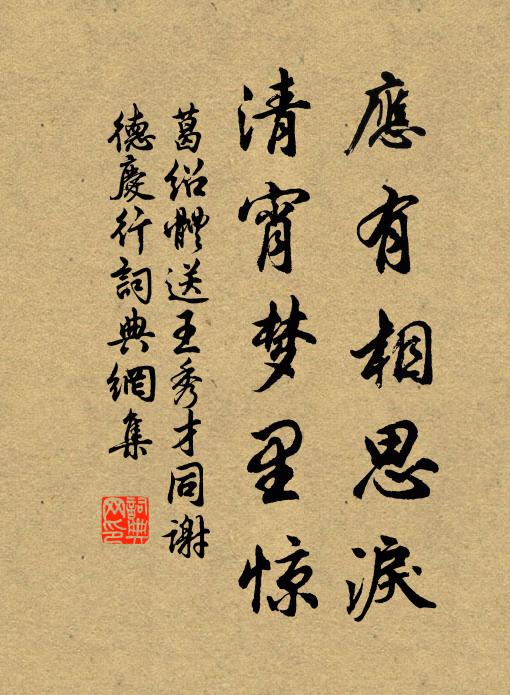 應有相思淚
清宵梦里惊
葛绍體送王秀才同謝
德慶行詞典網集
詞典网印